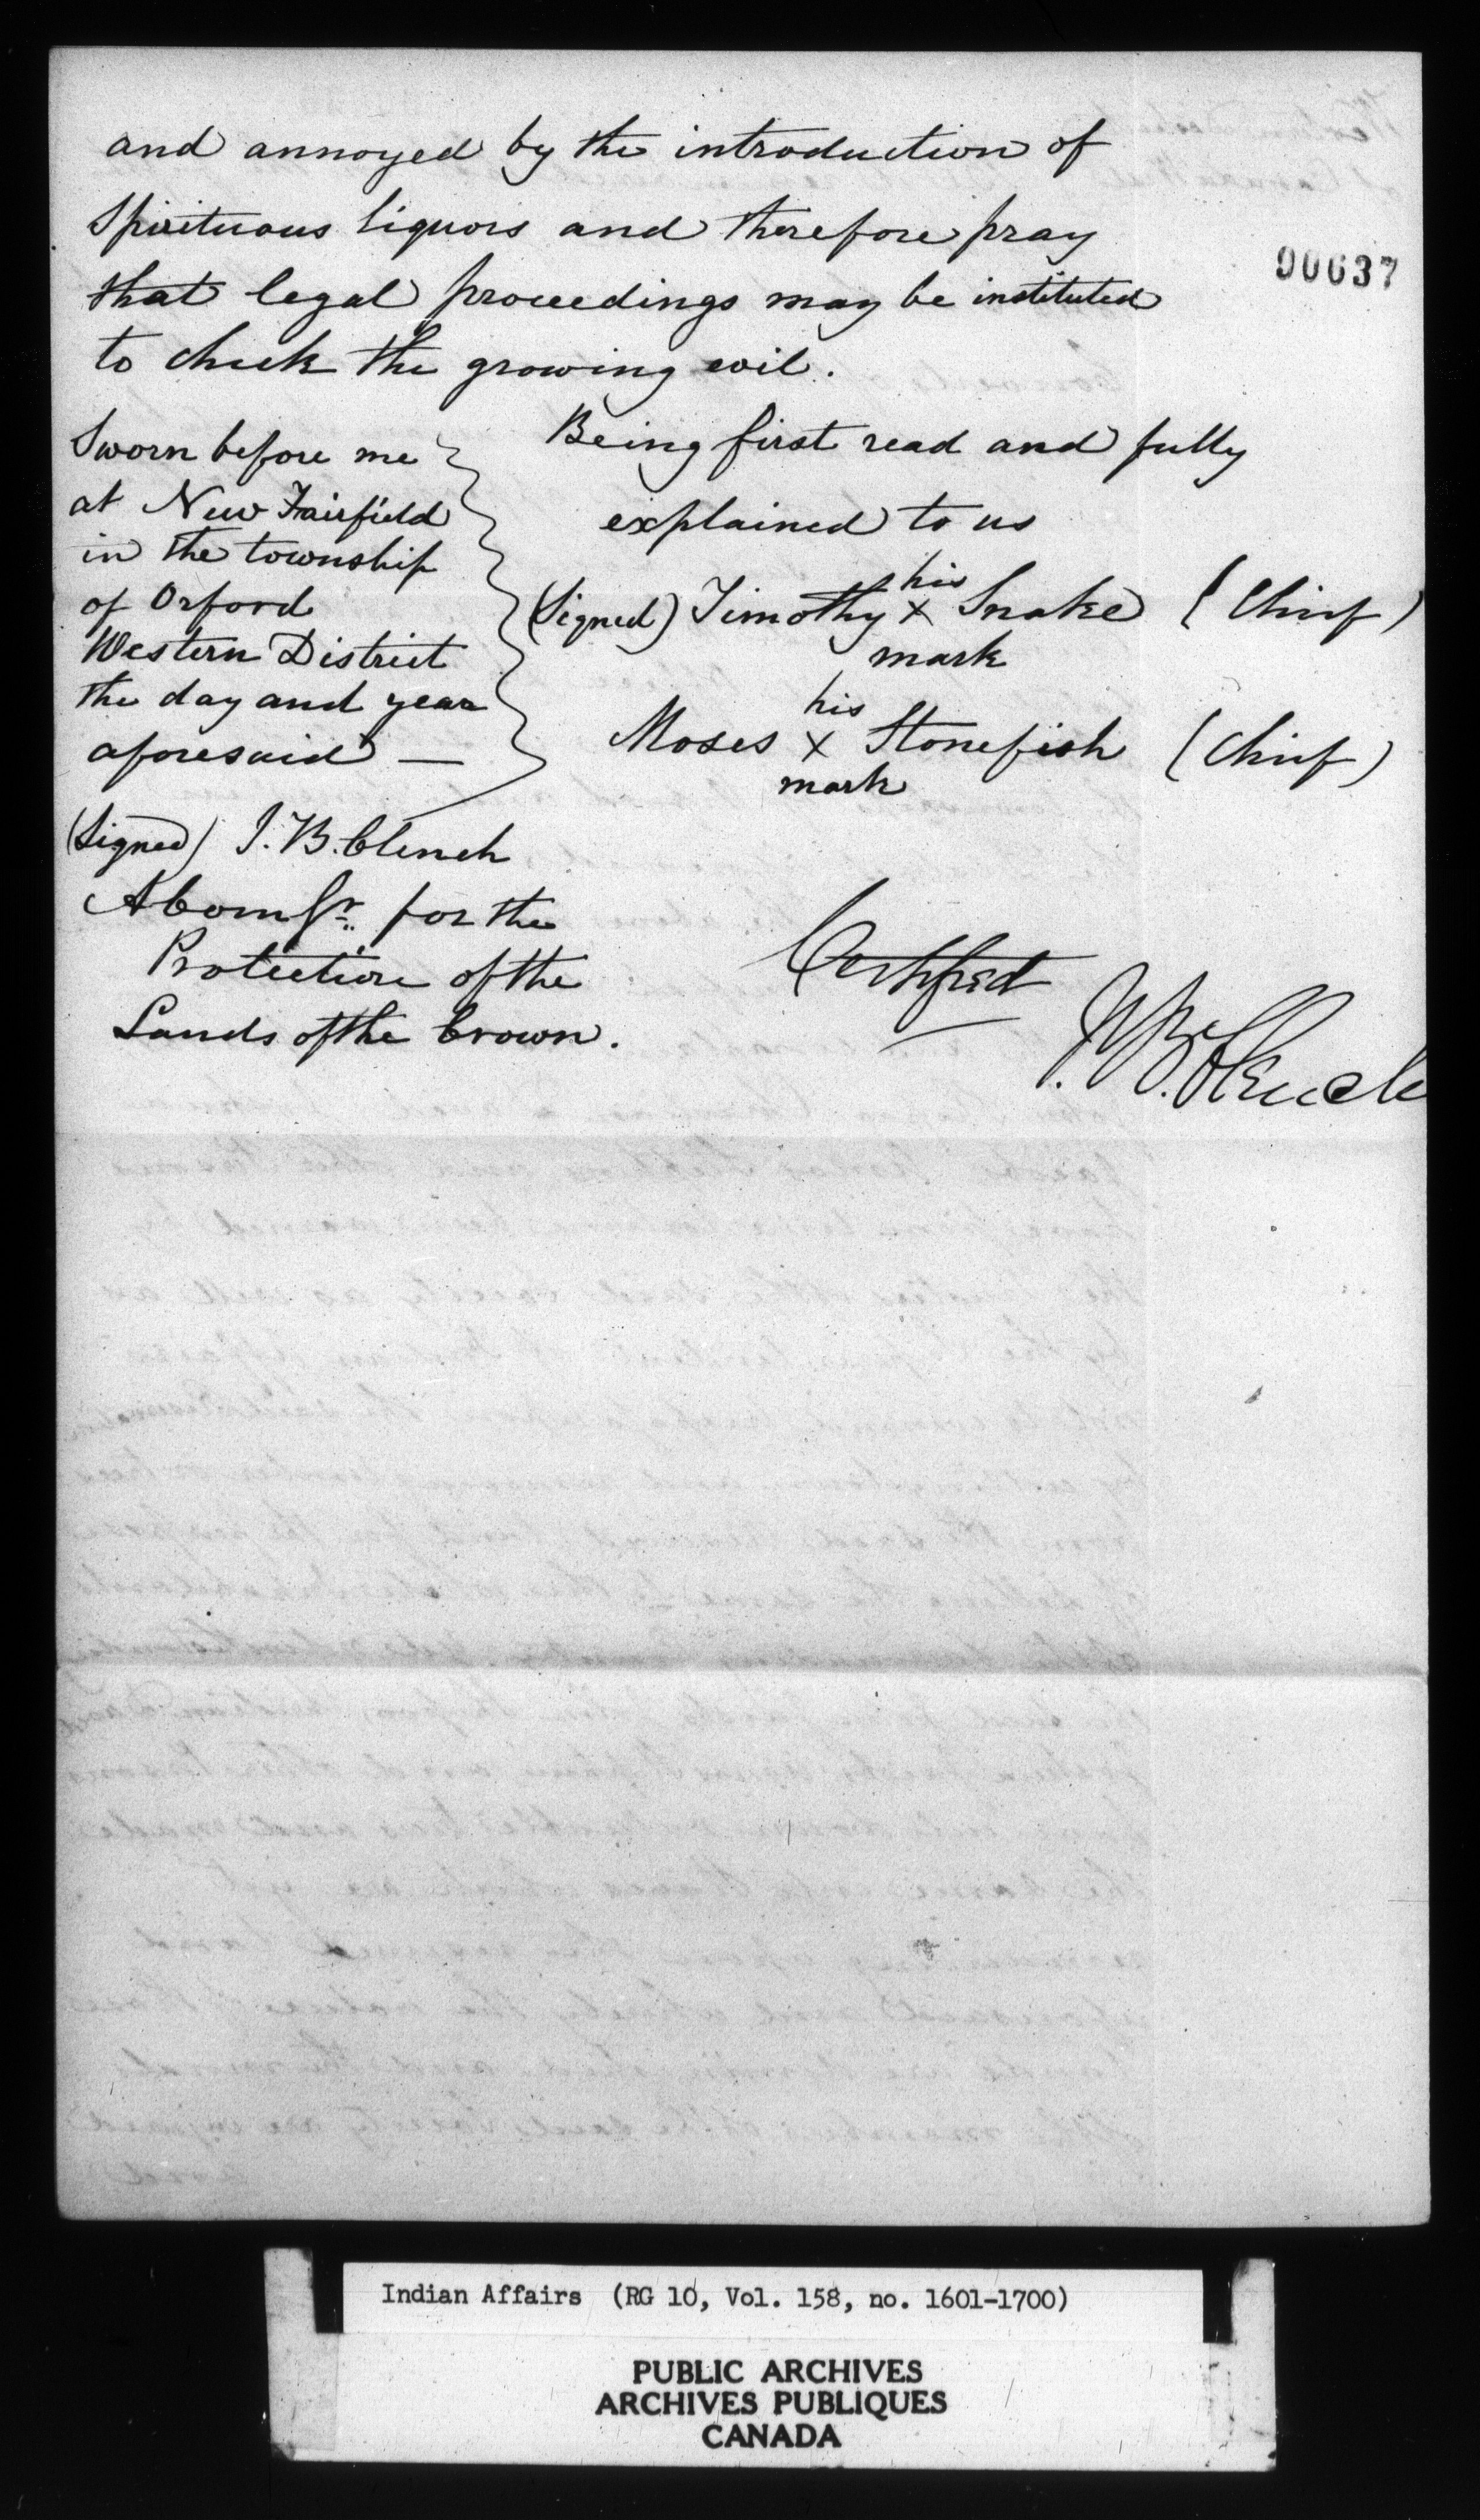 and annoyed by the introduction of
Spirituous liquors and therefore pray
that legal proceedings may be instituted
to check the growing evil.
90637
Sworn before me
at New Fairfield
in the township
of Orford
Western District
the day and year
aforesaid —
(Signed) J. B. Clench
A Comssr. for the
Protection of the
Lands of the Crown.
Being first read and fully
explained to us
his
(Signed) Timothy x Snake (Chief)
mark
his
Moses x Stonefish (Chief)
mark
Certified
J. B. Clench
Indian Affairs (RG 10, Vol. 158, no. 1601-1700)
PUBLIC ARCHIVES
ARCHIVES PUBLIQUES
CANADA